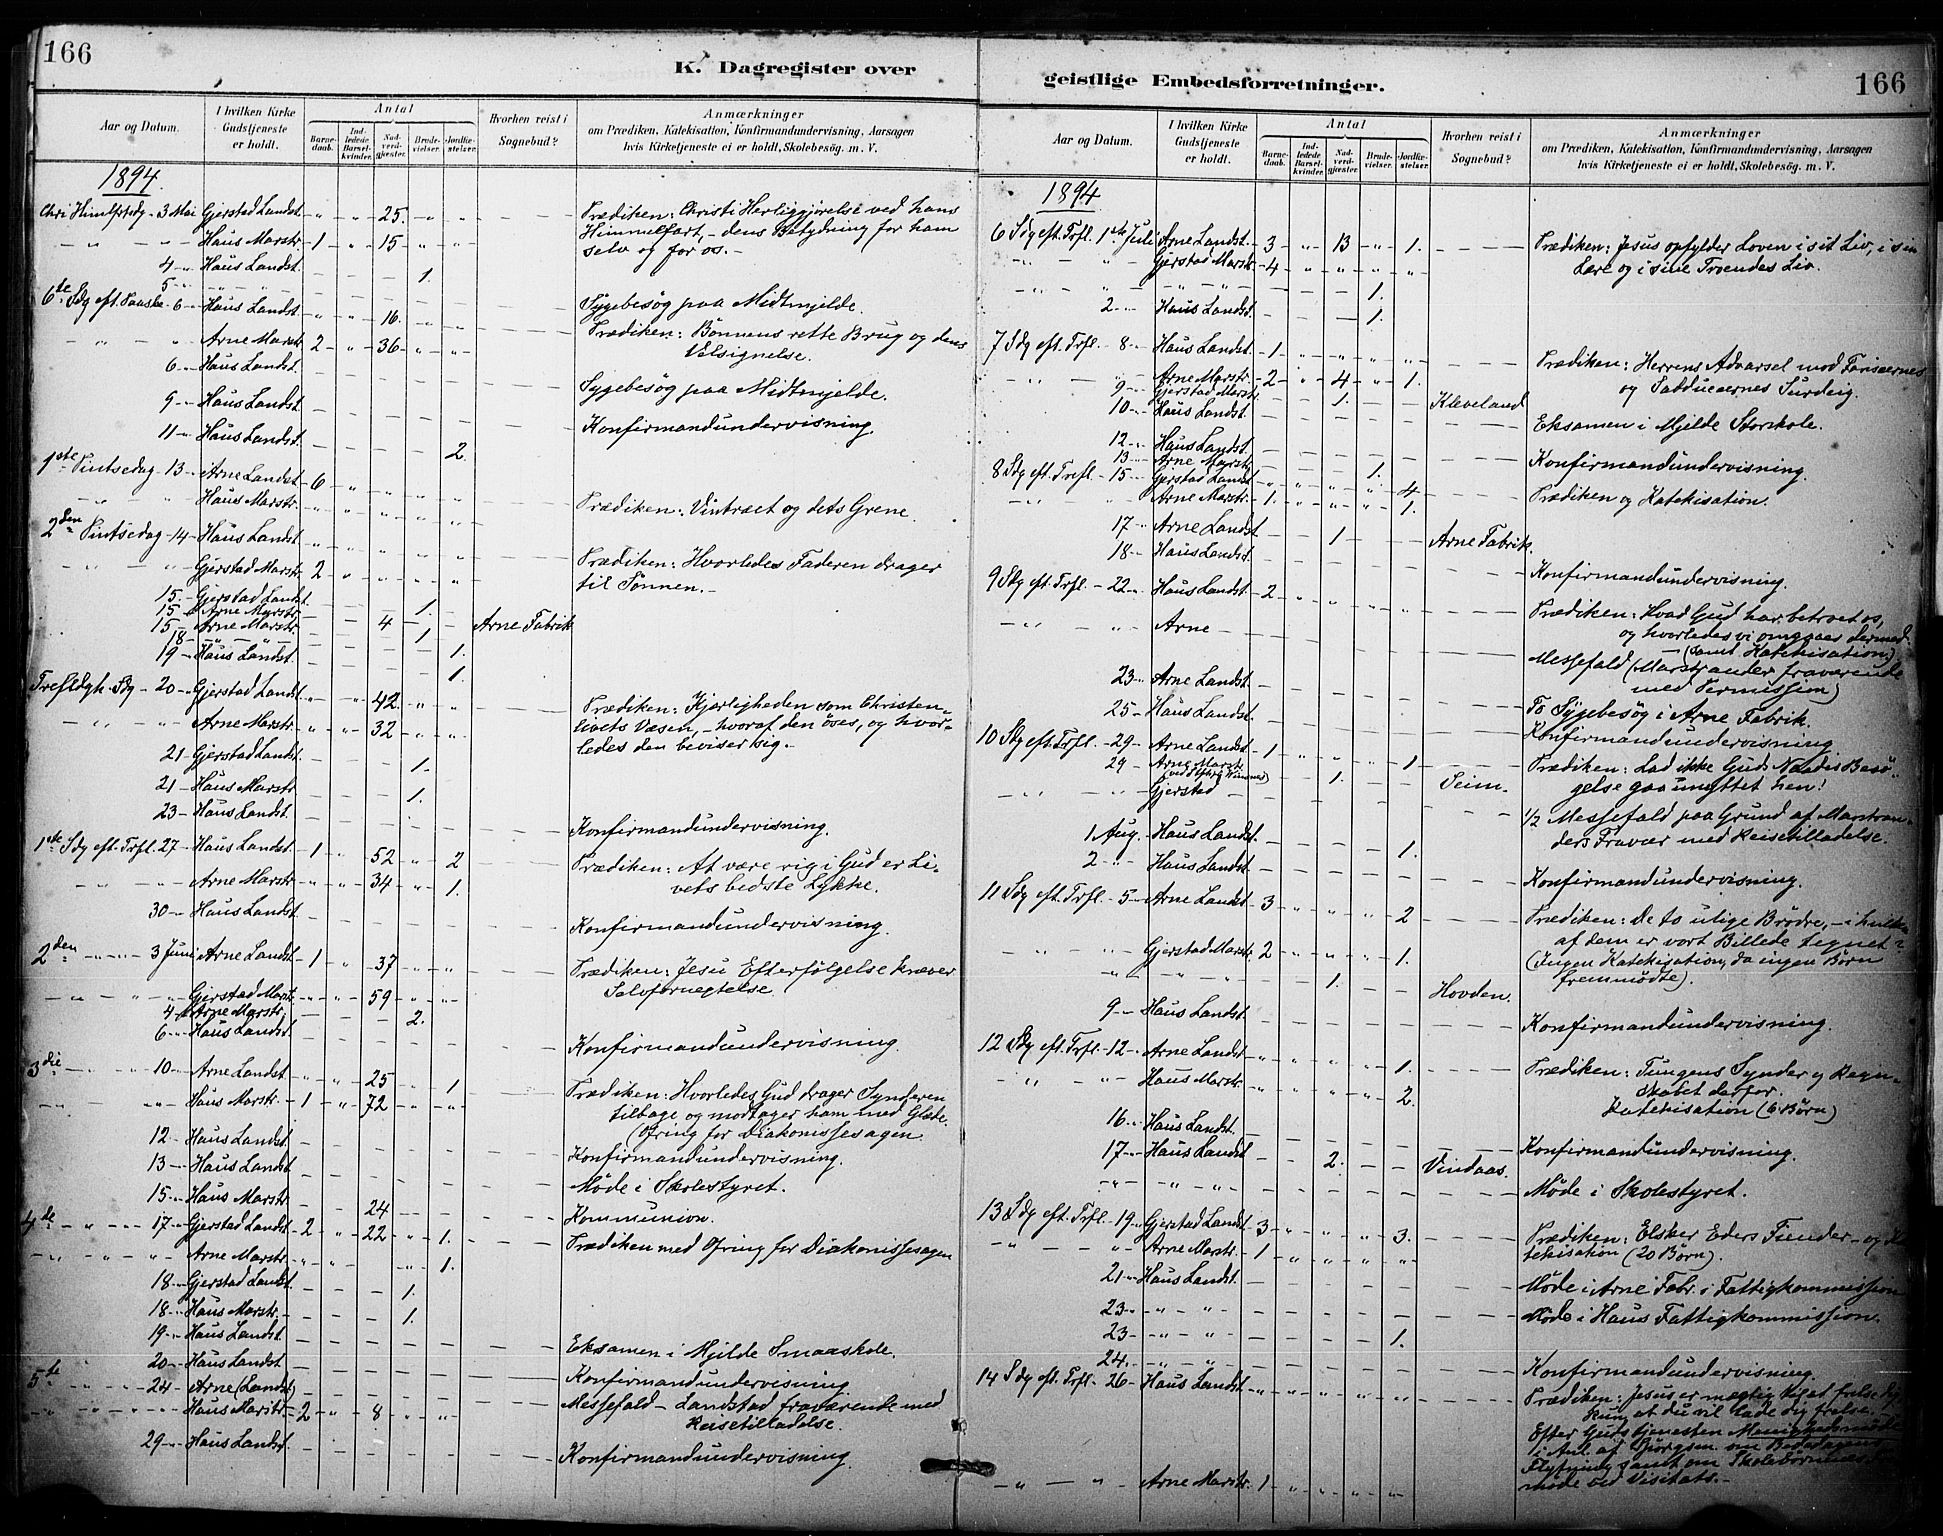 166
K. Dagregister over
Aar og Datum.
I hvilken Kirke Gudstjeneste er holdt.
Antal
Barne-daab.
Ind-ledede Barsel-kvinder.
Nad-verd-gjester.
Brude-vielser.
Jordfæ-stelser.
Hvorhen reist i Sognebud?
Anmærkninger
om Prædiken, Katekisation, Konfirmandundervisning, Aarsagen
hvis Kirketjeneste ei er holdt, Skolebesøg. m. V.
1894.
Chri Himlfrtsdg - 3 Mai Gjerstad Landst. " " 25. " " Prædiken: Christi Herliggjørelse ved hans
Himmelfart, - dens Betydning for ham
selv og for os. -
- " - " - Haus Marstr. 1 " 15 " "
4 " Haus Landst. - - - 1.
5 " - " - " - Sygebesøg paa Midtmjelde.
6te Sdg eft. Paaske - 6 - Haus Landst. " " 16. " " Prædiken: Bønnens rette Brug og dens
Velsignelse.
- " - " Arne Marstr. 2 " 36 - " "
6 - Haus Landst. - - - - - Sygebesøg paa Midtmjelde.
9 - Haus Landst. - - - - - Konfirmandundervisning.
11 " Haus Landst. - - - - 2.
1ste Pintsedag - 13 - Arne Landst. 6 " " " " Prædiken: Vintræet og dets Grene.
- " - " Haus Marstr. " " " " "
2den Pintsedag - 14 - Haus Landst. " " " " " Prædiken: Hvorledes Faderen drager
til Sønnen. -
- " - " Gjerstad Marstr. 2 " " " "
15. - Gjerstad Landst. - - - 1.
15 - Arne Marstr. - - 4 - - Arne Fabrik
15 - Arne Marstr. - - - 1.
18 - " - " - - - - - 1.
19 - Haus Landst. - - - - 1.
Trefldgh. Sdg - 20 - Gjerstad Landst. " " 42. " " Prædiken: Kjærligheden som Christen-
livets Væsen, - hvoraf den øves, og hvor-
ledes den beviser sig. -
- " - " Arne Marstr. " " 32 " "
21 - Gjerstad Landst. - - - 1.
21 - Haus Marstr. - - - 1.
23 - Haus Landst. - - - - - Konfirmandundervisning.
1ste Sdg eft. Trfl. 27 - Haus Landst. 1 " 52 " 2 Prædiken: At være rig i Gud er Li-
vets bedste Lykke.
" " - " - Arne Marstr. " " 34 " 1.
30 - Haus Landst. - - - - - Konfirmandundervisning.
2den - " - " 3 Juni Arne Landst. 1 " 37 " " Prædiken: Jesu Efterfølgelse kræver
Selvfornegtelse.
- " - " - " Gjerstad Marst. " " 59 " "
4 - Arne Marstr. - - - 2.
6 - Haus Landst. - - - - - Konfirmandundervisning.
3die - " - " 10 - Arne Landst. " " 25 " 1 Prædiken: Hvorledes Gud drager Synderen
tilbage og modtager ham med Glæde.
(Ofring for Diakonissesagen
- " - " - Haus Marstr. 1 " 72 " "
12 - Haus Landst. - - - - - Konfirmandundervisning.
13 - Haus Landst. - - - - - Møde i Skolestyret.
15 - Haus Marstr. - - 24 - - Kommunion.
4de - " - " 17 - Gjerstad Landst. 2 " 22 " 1. Prædiken med Ofring for Diakonissesagen
- " - " - " Arne Marstr. " " " " 1.
18 - Gjerstad Landst. - - - 1.
18 - Haus Marstr. - - - 1.
19 - Haus Landst. - - - - - Eksamen i Mjelde Smaaskole.
20 - Haus Landst. - - - - - Konfirmandundervisning
5te " " 24 - Arne (Landst) - - - - - Messefald - Landstad fraværende med
Reisetilladelse.
" " " Haus Marstr. 2 " 8 " "
29 - Haus Landst. - - - - - Konfirmandundervisning.
geistlige Embedsforretninger.
166
Aar og Datum.
I hvilken Kirke Gudstjeneste er holdt.
Antal
Barne-daab.
Ind-ledede Barsel-kvinder.
Nad-verd-gjester.
Brude-vielser.
Jordfæ-stelser.
Hvorhen reist i Sognebud?
Anmærkninger
om Prædiken, Katekisation, Konfirmandundervisning, Aarsagen
hvis Kirketjeneste ei er holdt, Skolebesøg. m. V.
1894
6 Sdg eft. Trfl. 1ste Juli Arne Landst. 3 " 13 " 1. Prædiken: Jesus opfylder Loven i sit Liv, i sin
Lære og i sine Troendes Liv.
- " - " Gjerstad Marstr. 4 " " " "
- " - " - " - " - - - - 1.
2 - Haus Landst. - - - 1.
7 Sdg eft. Trfl. - 8 - Haus Landst. 1 " " " " Prædiken: Herrens Advarsel mod Farisæernes
og Sadducæernes Surdeig.
" - " Arne Marstr. 2 " 4 " 1.
9 - Gjerstad Marstr. - - 1. - - Kleveland
10 - Haus Landst. - - - - - Eksamen i Mjelde Storskole.
12 - Haus Landst. - - - - - Konfirmandundervisning.
13 - Arne Marstr. - - - 1.
8 Sdg eft. Trefl. - 15 - Gjerstad Landst. " " " " 4. Prædiken og Katekisation.
- " - " Arne Marstr. 1. " " " 1.
17 - Arne Landst. - - 1 - - Arne Fabrik.
18 - Haus Landst. - - - - - Konfirmandundervisning.
9 Sdg eft. Trfl. - 22 - Haus Landst. 2 " " " " Prædiken: Hvad Gud har betroet os,
og hvorledes vi omgaaes dermed.
- (samt Katekisation)
- " - " Arne - - - - - Messefald (Marstrander fraværende
med Permission)
23 - Arne Landst. - - - - - To Sygebesøg i Arne Fabrik.
25 - Haus Landst. - - - - - Konfirmandundervisning.
10 Sdg eft. Trfl. - 29 - Arne Landst. 1 " " " 1. Prædiken: Lad ikke Guds Naades Besø-
gelse gaa unyttet hen!
29 - Arne Marstr. - - 1. - - Seim.
" - " Gjerstad - - - - - 1/2 Messefald paa Grund af Marstran-
ders Fravær med Reisetilladelse.
1 Aug. Haus Landst. - - - - 1.
2 - Haus Landst. - - - - - Konfirmandundervisning.
11 Sdg eft. Trfl. - 5 - Arne Landst. 3 " " " 2 Prædiken: De to ulige Brødre, - i hvilken
af dem er vort Billede tegnet?
(Ingen Katekisation, da ingen Børn
fremmødte).
" - " Gjerstad Marstr. 2 " " " 1.
" - " - " - - 1. - - Hovden.
9 - Haus Landst. - - - - - Konfirmandundervisning.
12 Sdg eft. Trfl. - 12 - Arne Landst. " " " " 1. Prædiken: Tungens Synder og Regn-
skabet derfor.
Katekisation (6 Børn)
" - " Haus Marstr. " " " " 2.
16 - Haus Landst. - - - - - Konfirmandundervisning.
17 - Haus Landst. - - 2. - - Vindaas.
- " - " - " - - - - - - Møde i Skolestyret.
13 Sdg eft. Trfl. - 19 - Gjerstad Landst. 3 " " " 3. Prædiken: Elsker Eders Fiender - og Ka-
tekisation (20 Børn).
- " - " Arne Marstr. 1 " " " "
21 - Haus Landst. - - - - - Møde i Arne Fabr. i Fattigkommission
23 - " - " - - - - - - Møde i Haus Fattigkommission.
23 - " - " - - - - 1.
24. - " - " - - - - - - Konfirmandundervisning.
14 Sdg eft. Trfl. - 26 - Haus Landst. " " " " " Prædiken: Jesus er mægtig til at frelse dig,
kun at du vil lade dig frelse. -
Efter Gudstjenesten Menighedsmøde
i Anl. af Spørgsm. om Bededagens
Flytning samt om Skolebørnenes
møde ved Visitats. -
- " - " Arne Marstr. 1 " " " "